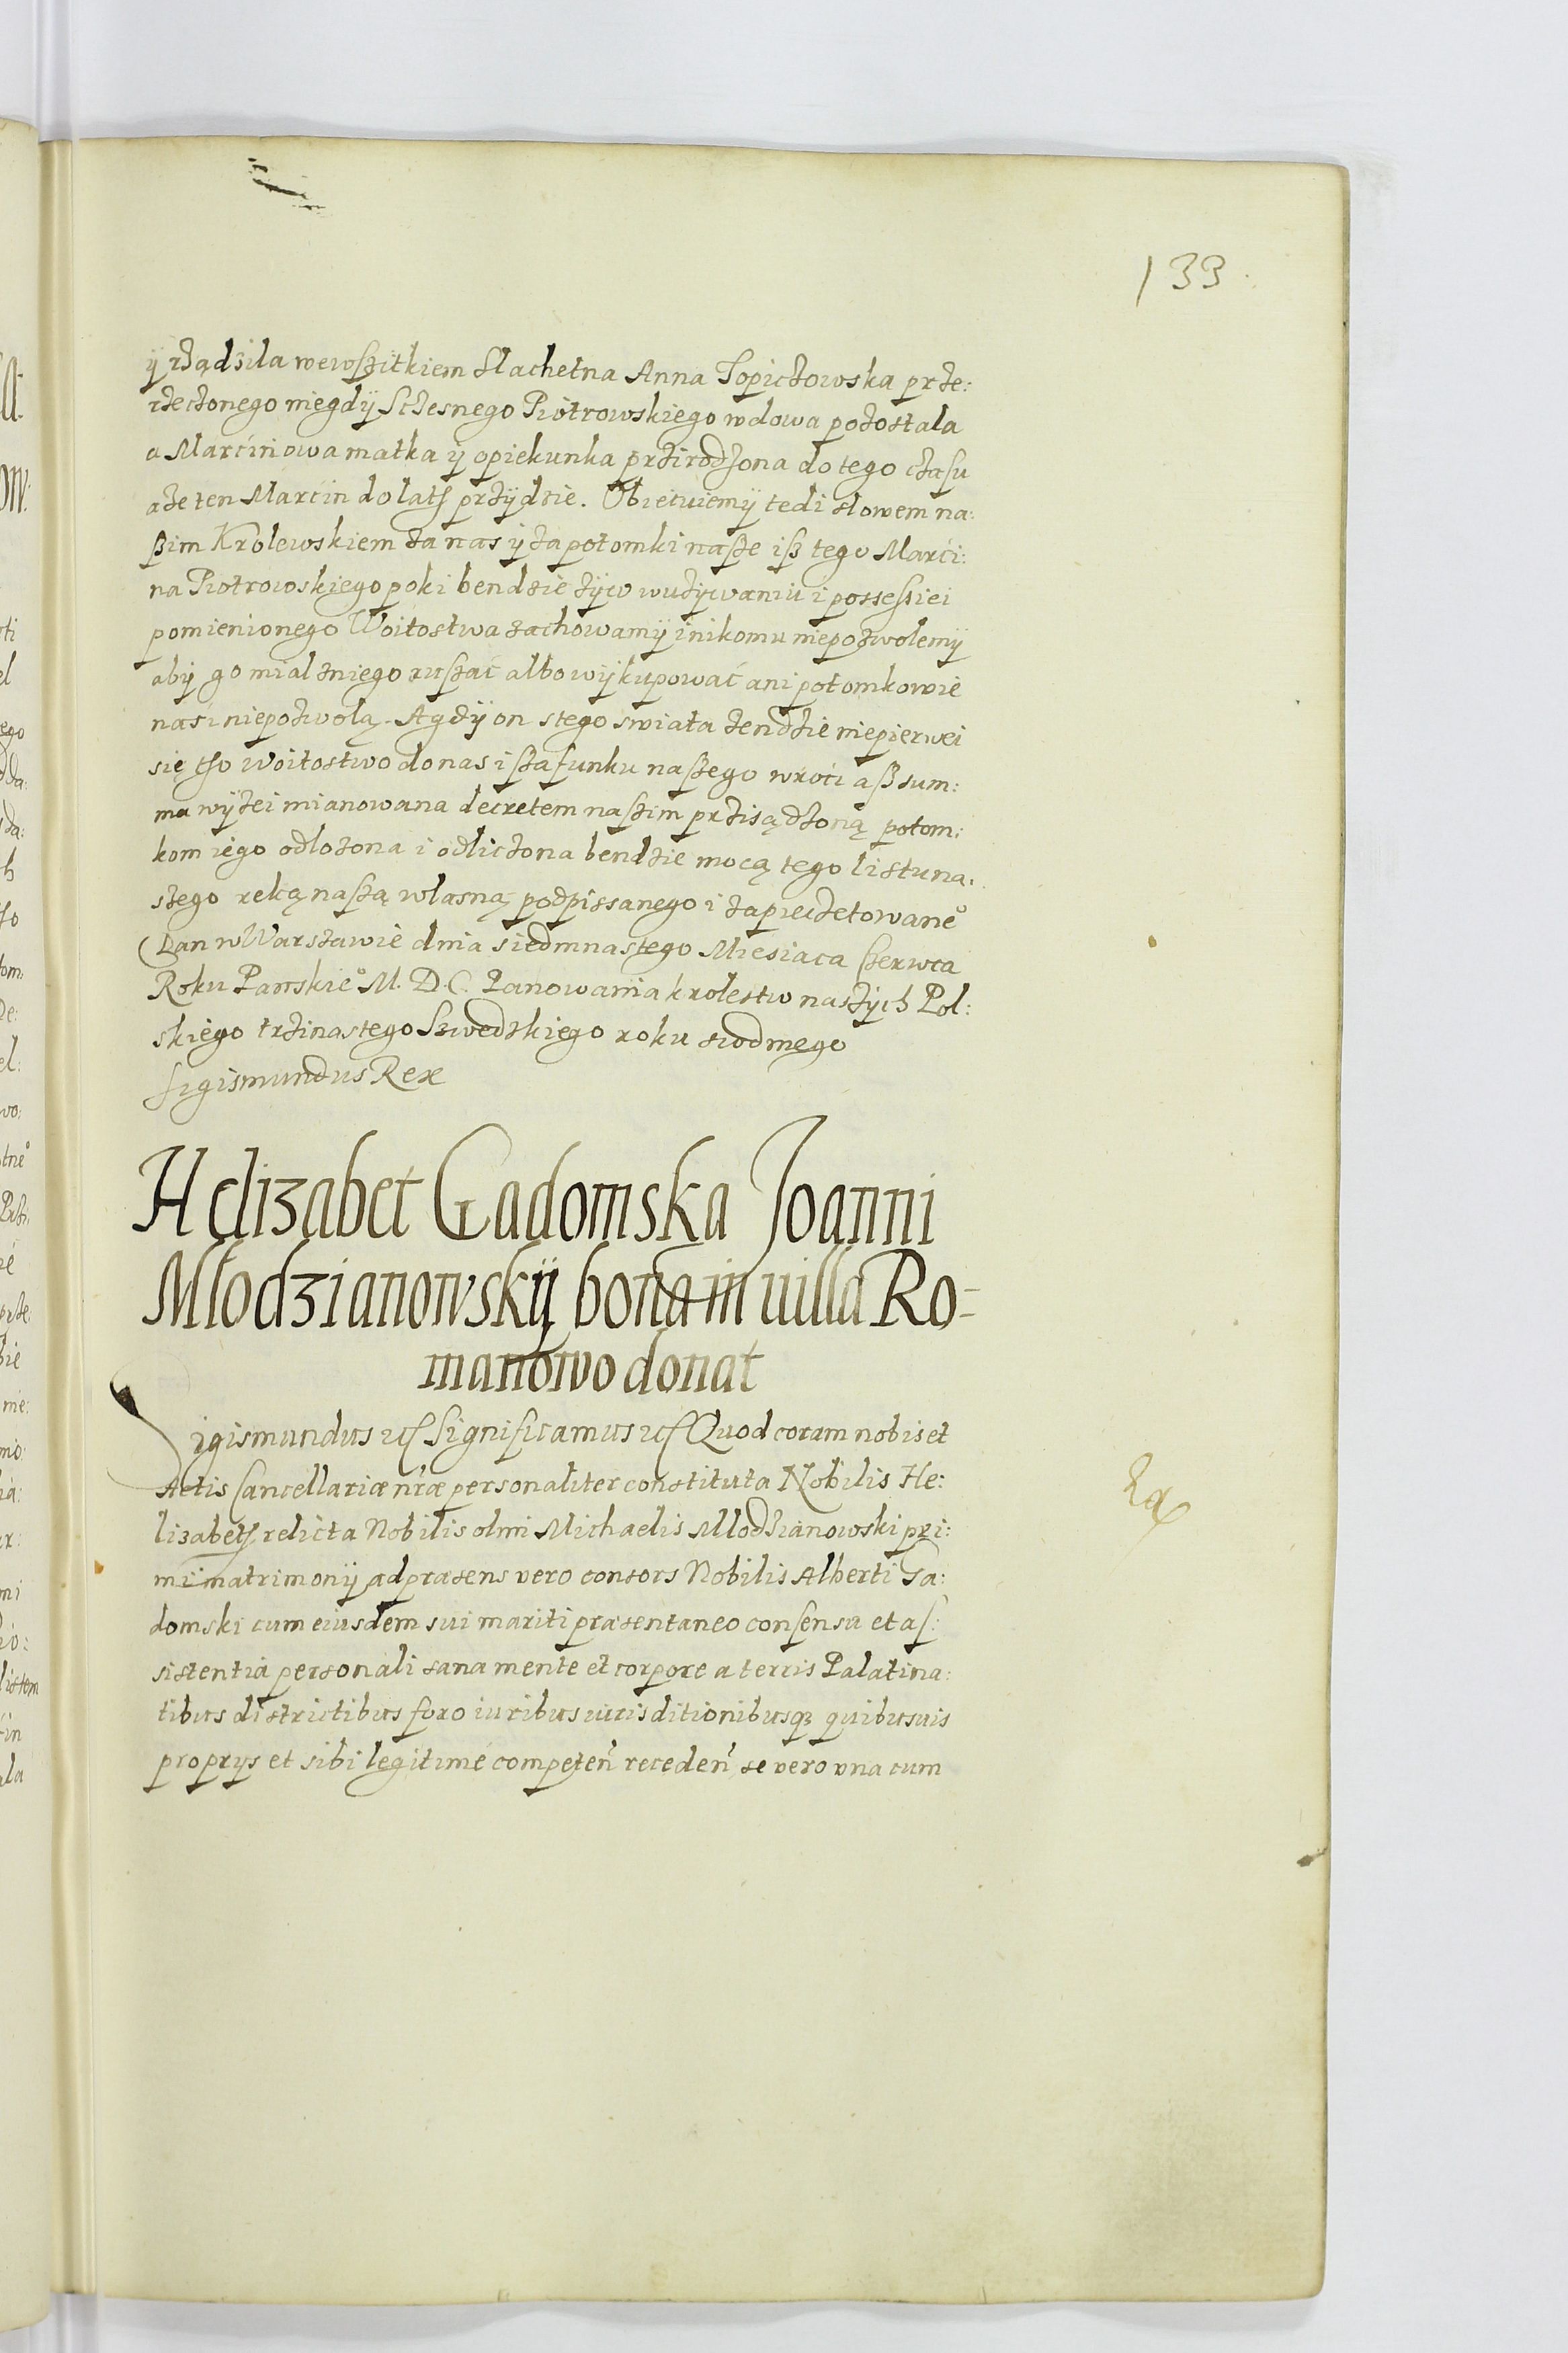 133
ÿ rządzila wewszitkiem Slachetna Anna Topiczowska prze:
rzeczonego niegdÿ Sczesnego Piotrowskiego wdowa pozostala
a Marcinowa matka ÿ opiekunka przirodzona do tego czasu
aze ten Marcin do lath przÿdzie. Obiecuiemÿ tedi slowem na:
szim Krolewskiem za nas ÿ za potomki nasze isz tego Marci:
na Piotrowskiego poki bendzie zÿw wuzÿwaniu i possessiei
pomienionego Woitostwa zachowamÿ i nikomu niepozwolemÿ
abÿ go mial zniego ruszać albo wÿkupować ani potomkowie
nasi niepozwolą. A gdÿ on stego swiata zendzie niepierwei
się tho woitostwo do nas i szafunku naszego wroci asz sum:
ma wÿzei mianowana decretem naszim przisądzoną potom:
kom iego odlozona i odliczona bendzie mocą tego listu na:
szego reką naszą wlasną podpissanego i zapieczetowaneº
Dan w Warszawie dnia siedmnastego Miesiaca Czerwca
Roku Panskieº M. D. C. Panowania krolestw naszÿch Pol:
skiego trzinastego Szwedzkiego roku siodmego
Sigismundus Rex
Helizabet Gadomska Joanni
Młodzianowskÿ bona in uilla Ro-
manowo donat
Sigismundus etc Significamus etc Quod coram nobis et
Actis Cancellariæ nræ personaliter constituta Nobilis He:
lizabeth relicta Nobilis olmi Michaelis Mlodzianowski pri:
mi matrimonÿ ad præsens vero consors Nobilis Alberti Ga:
domski cum eiusdem sui mariti præsentaneo consensu et as:
sistentia personali sana mente et corpore a terris Palatina:
tibus districtibus foro iuribus iurisditionibusq3 quibusuis
proprÿs et sibi legitimé competen̄ receden̄ se vero vna cum